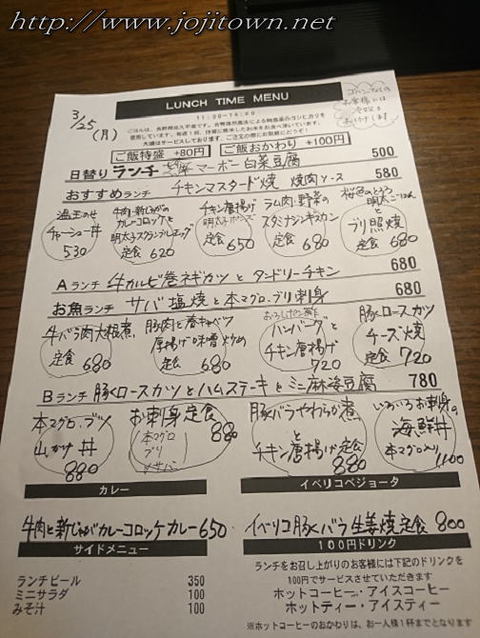 http://www.jojitown.net
LUNCH TIME MENU
11:30~14:00
3/25(月)
コインなしの
お客様には
ご飯特盛 +80円
ご飯おかわり +100円
日替りランチ マーボー白菜豆腐 500
おすすめランチ チキンマスタード焼 焼肉ソース 580
温玉のせ
チャーシュー丼
530
牛肉・新じゃがの
カレーコロッケと
明太子スクランブルエッグ
定食 620
チキン唐揚げ
明太子ポンズ
定食 650
ラム肉・野菜の
スタミナジンギスカン
定食 680
明太ごはん
ブリ照焼
定食 680
Aランチ 牛カルビ巻ネギカツとタンドリーチキン 680
お魚ランチ サバ塩焼と本マグロ、ブリ刺身 680
牛バラ肉大根煮
定食 680
豚肉と春キャベツ
厚揚げ味噌炒め
定食 680
おろしポン酢
ハンバーグと
チキン唐揚げ
720
豚ロースカツ
チーズ焼
定食 720
Bランチ 豚ロースカツとハムステーキとミニ麻婆豆腐 780
本マグロ、ブツ
山かけ丼
880
お刺身定食
880
本マグロ
ブリ
〆サバ
豚バラやわらか煮
と
チキン唐揚げ定食
880
いろいろお刺身の
海鮮丼
本マグロ入り
1100
カレー
牛肉と新じゃがカレーコロッケカレー 650
イベリコベジョータ
イベリコ豚バラ生姜焼定食 800
サイドメニュー
ランチビール 350
ミニサラダ 100
みそ汁 100
100円ドリンク
ランチをお召し上がりのお客様には下記のドリンクを
100円でサービスさせていただきます
ホットコーヒー・アイスコーヒー
ホットティー・アイスティー
※ホットコーヒーのおかわりは、お一人様1杯までとなります